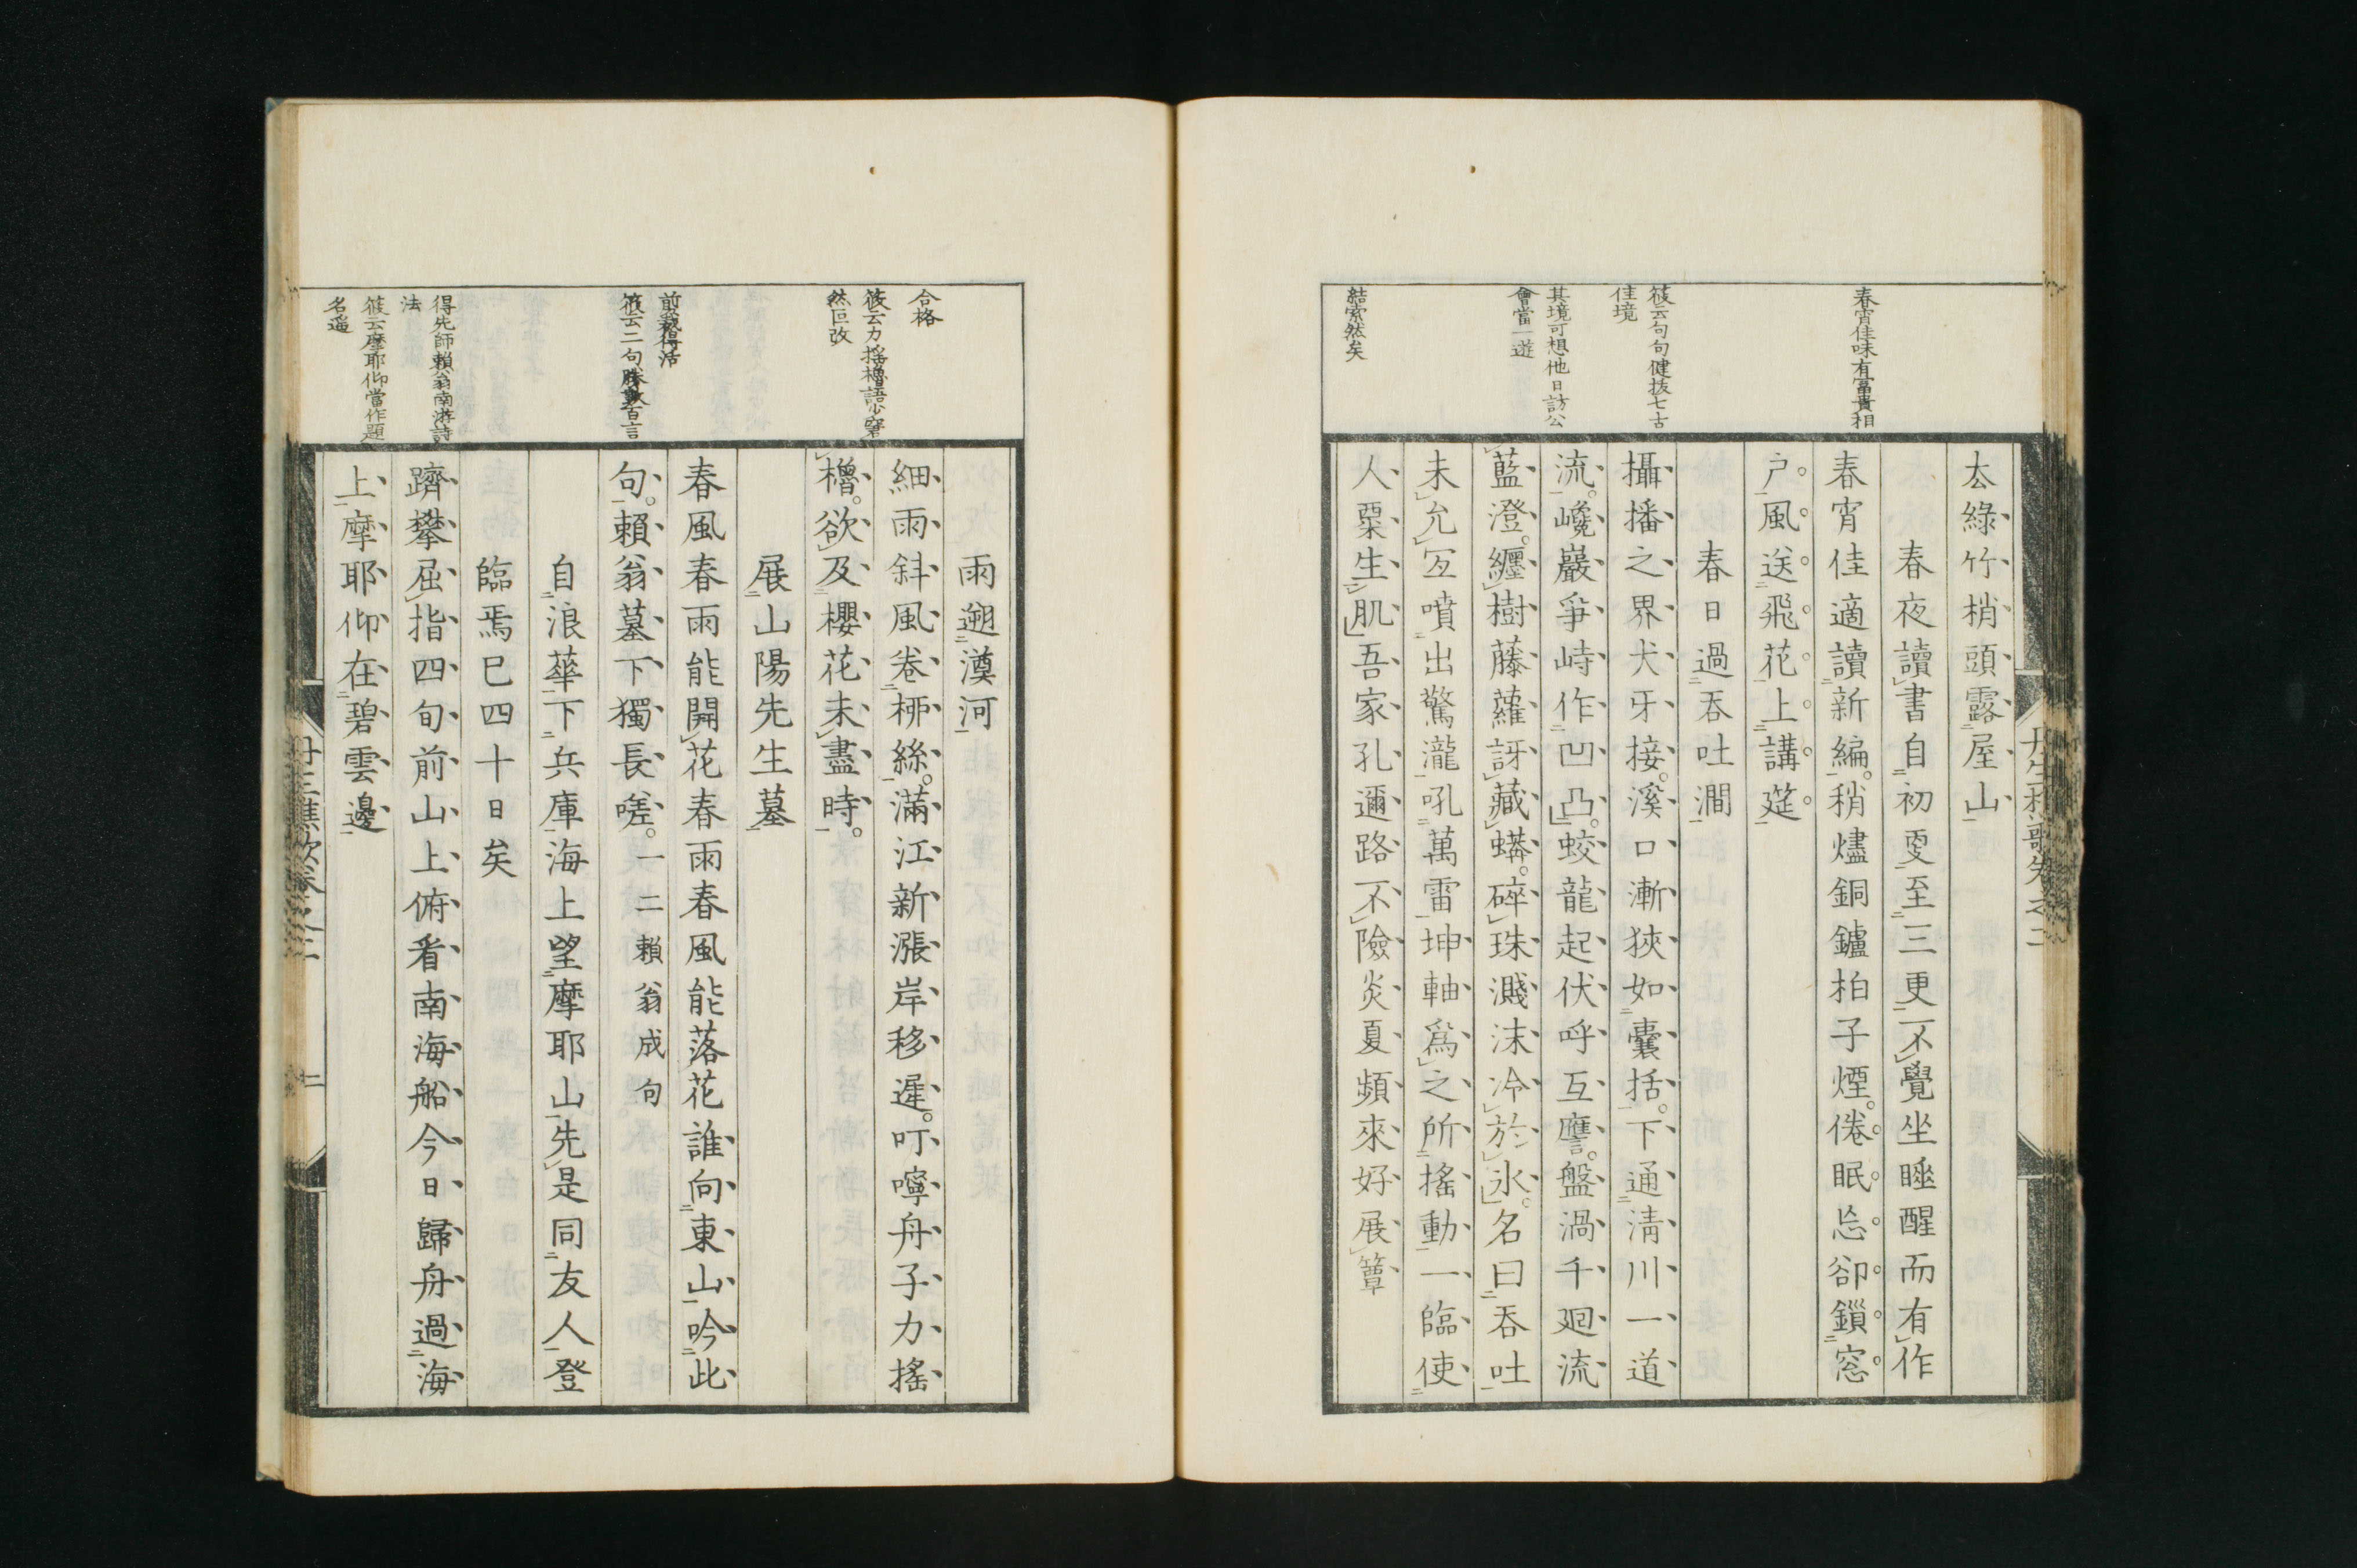 春宵佳味有富貴相
筱云句句健拔七古
佳境
其境可想他日訪公
會當一遊
結索然矣
太綠竹梢頭露屋山
春夜讀書自初更至三更不覺坐睡醒而有作
春宵佳適讀新編稍燼銅鑪柏子煙倦眠忘卻鎖窓
戶風送飛花上講筵
春日過吞吐澗
攝播之界犬牙接溪口漸狹如囊括下通淸川一道
流巉巖爭峙作凹凸蛟龍起伏呼互應盤渦千廻流
藍澄纏樹藤蘿訝藏蟒碎珠濺沫冷於氷名曰吞吐
未允宜噴出驚瀧吼萬雷坤軸爲之所搖動一臨使
人粟生肌吾家孔邇路不險炎夏頻來好展簟
合格
筱云力搖櫓語少窘
然叵改
前截得活
筱云二句勝數百言
得先師賴翁南游詩
法
筱云摩耶仰當作題
名遥
雨遡澳河
細雨斜風卷桺絲滿江新漲岸移遲叮嚀舟子力搖
櫓欲及櫻花未盡時
展山陽先生墓
春風春雨能開花春雨春風能落花誰向東山吟此
句賴翁墓下獨長嗟一二賴翁成句
自浪華下兵庫海上望摩耶山先是同友人登
臨焉巳四十日矣
躋攀屈指四旬前山上俯看南海船今日歸舟過海
上摩耶仰在碧雲邊